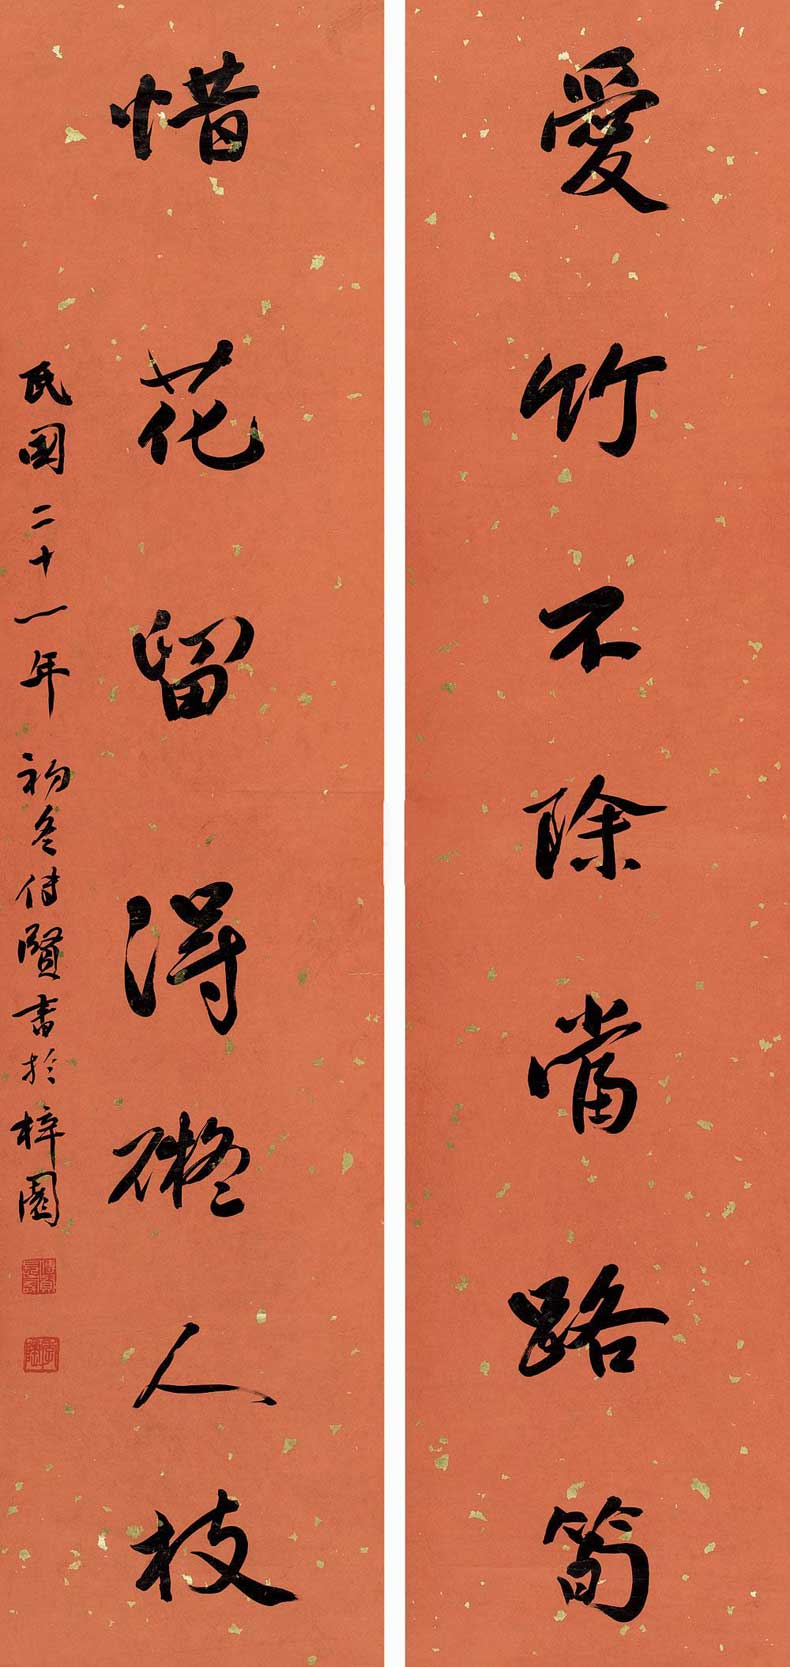 愛竹不除當路筍
惜花留得礙人枝
民國二十一年初冬傅賢書於梓園